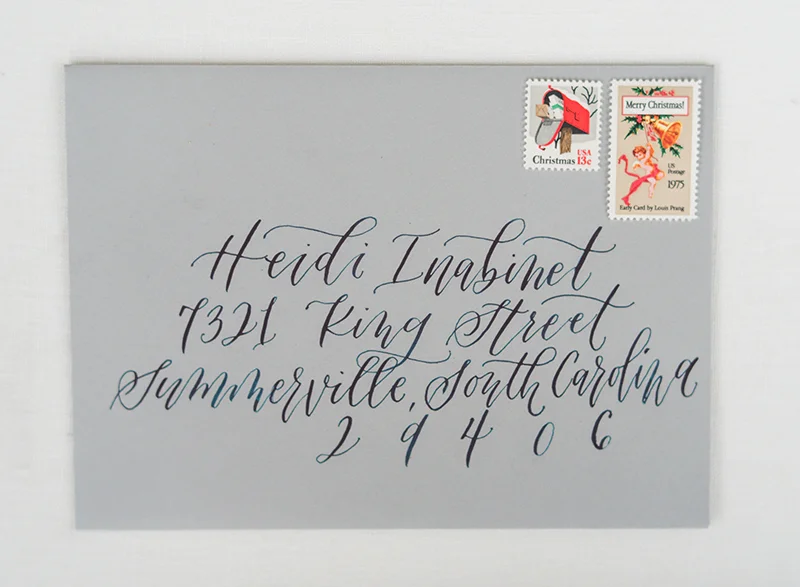 Merry Christmas!
Christmas USA 13c
US Postage
1975
Early Card by Louis Prang
Heidi Inabinet
7321 King Street
Summerville, South Carolina
29406